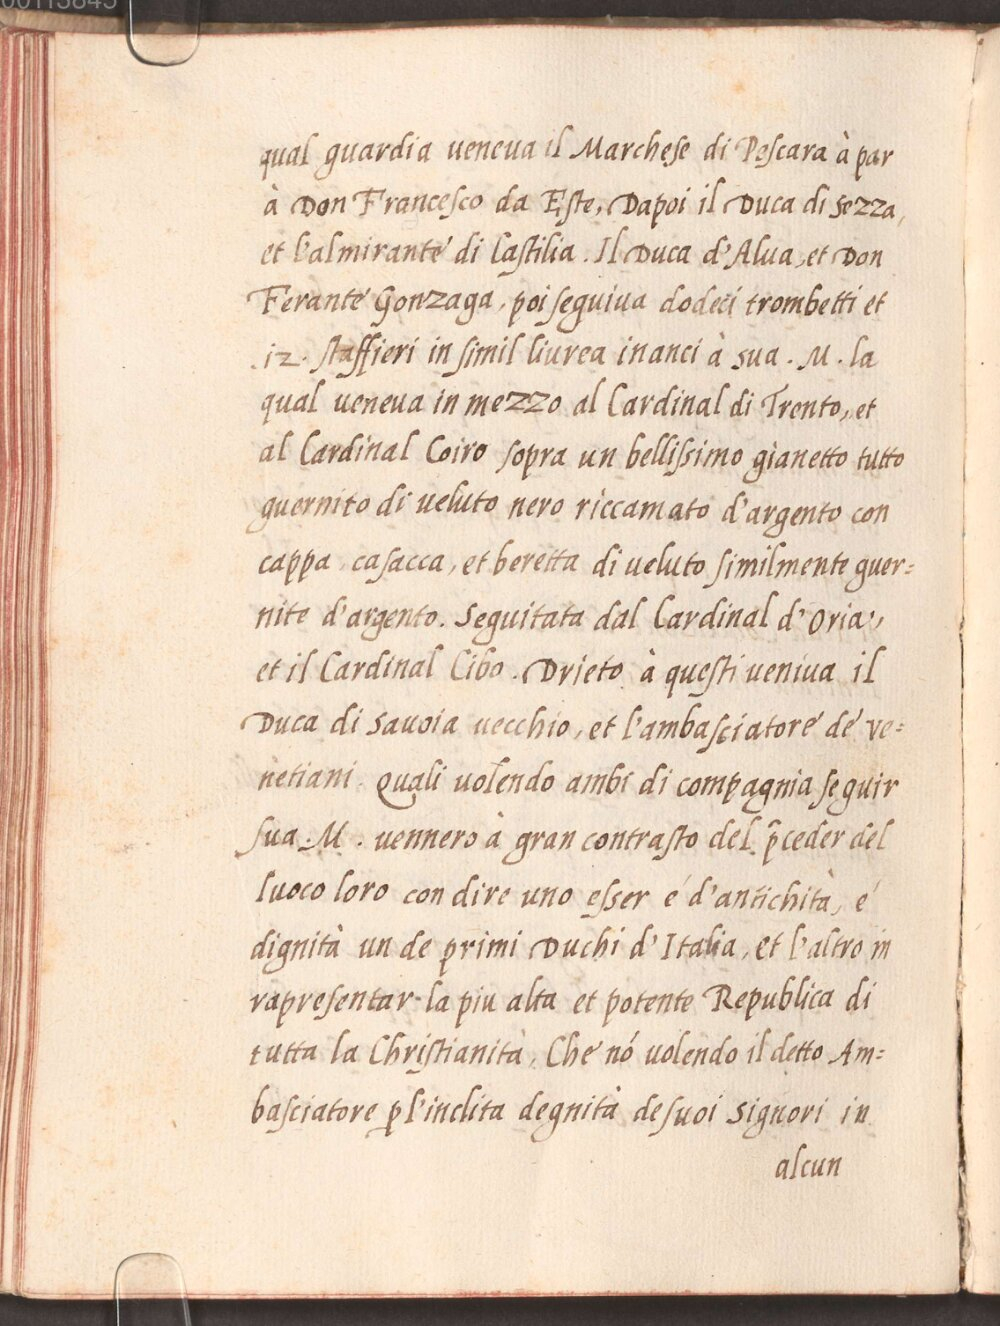 00113845
qual guardia ueneua il Marchese di Pescara à par
à Don Francesco da Este, Dapoi il Duca di Sezza,
et l'almirante di Castilia. Il Duca d'Alua, et Don
Ferante Gonzaga, poi seguiua dodeci trombetti et
12. staffieri in simil liurea inanci à sua. M. la
qual ueneua in mezzo al Cardinal di Trento, et
al Cardinal Coiro sopra un bellissimo gianetto tutto
guernito di ueluto nero riccamato d'argento con
cappa, casacca, et beretta di ueluto similmente guer=
nite d'argento. Seguitata dal Cardinal d'Oria,
et il Cardinal Cibo. Drieto à questi ueniua il
Duca di Sauoia uecchio, et l'ambasciatore de ve=
netiani. Quali uolendo ambi di compagnia seguir
sua. M. uennero à gran contrasto del p̃ceder del
luoco loro con dire uno esser é d'antichità, é
dignità un de primi Duchi d'Italia, et l'altro in
rapresentar la piu alta et potente Republica di
tutta la Christianità, Che nó uolendo il detto Am=
basciatore ꝑ l'inclita degnità de suoi Signori in
alcun